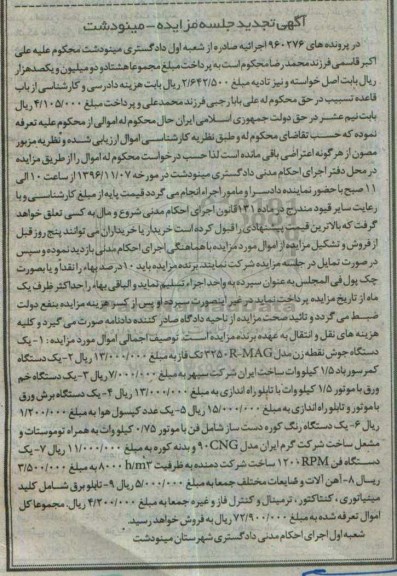 آگهی تجدید جلسه مزایده - مینودشت
در پرونده های ۹۶۰۲۷۶ اجرائیه صادره از شعبه اول دادگستری مینودشت محکوم علیه علی
اکبر قاسمی فرزند محمدرضا محکوم است به پرداخت مبلغ مجموعا هشتاد و دو میلیون و یکصد هزار
ریال بابت اصل خواسته و نیز تادیه مبلغ ۲/۶۴۲/۵۰۰ ریال بابت هزینه دادرسی و کارشناسی از باب
قاعده تسبیب در حق محکوم له علی بابا رجبی فرزند محمدعلی و پرداخت مبلغ ۴/۱۰۵/۰۰۰ ریال
بابت نیم عشر در حق دولت جمهوری اسلامی ایران حال محکوم له اموالی از محکوم علیه تعرفه
نموده که حسب تقاضای محکوم له و طبق نظریه کارشناسی اموال ارزیابی شده و نظریه مزبور
مصون از هر گونه اعتراضی باقی مانده است لذا حسب درخواست محکوم له اموال را از طریق مزایده
در محل دفتر اجرای احکام مدنی دادگستری مینودشت در مورخه ۱۳۹۶/۱۱/۰۷ از ساعت ۱۰ الی
۱۱ صبح با حضور نماینده دادسرا و مامور اجرا انجام می گردد قیمت پایه از مبلغ کارشناسی و با
رعایت سایر قیود مندرج در ماده قانون اجرای احکام مدنی شروع و مال به کسی تعلق خواهد
گرفت که بالاترین قیمت پیشنهادی را قبول کرده است خریدار یا خریداران می توانند پنج روز قبل
از فروش و تشکیل مزایده از اموال مورد مزایده با هماهنگی اجرای احکام مدنی بازدید نموده و سپس
در صورت تمایل در جلسه مزایده شرکت نمایند. برنده مزایده باید ۱۰ درصد بهاء را نقداً و یا بصورت
چک پول فی المجلس به عنوان سپرده به واحد اجراء تسلیم نماید و الباقی بهاء را حداکثر ظرف یک
ماه از تاریخ مزایده پرداخت نماید در غیر اینصورت سپرده او پس از کسر هزینه مزایده بنفع دولت
ضبط می گردد و تائید صحت مزایده از ناحیه دادگاه صادر کننده دادنامه صورت می گیرد و کلیه
هزینه های نقل و انتقال به عهده برنده مزایده است. توصیف اجمالی اموال مورد مزایده : ۱- یک
دستگاه جوش نقطه زن مدل R-MAG ۳۲۵۰ تک فاز به مبلغ ۱۳/۰۰۰/۰۰۰ ریال ۲- یک دستگاه
کمرسور باد ۱/۵ کیلو وات ساخت ایران شرکت سپهر به مبلغ ۷/۰۰۰/۰۰۰ ریال ۳- یک دستگاه خم
ورق با موتور ۱/۵ کیلو وات با تابلو راه اندازی به مبلغ ۱۳/۰۰۰/۰۰۰ ریال ۴- یک دستگاه برش ورق
با موتور و تابلو راه اندازی به مبلغ ۱۵/۰۰۰/۰۰۰ ریال ۵- یک عدد کپسول هوا به مبلغ ۱/۲۰۰/۰۰۰
ریال ۶- یک دستگاه رنگ کوره دست ساز شامل فن با موتور ۰/۷۵ کیلو وات به همراه توموستات و
مشعل ساخت شرکت گرم ایران مدل ۹۰CNG و بدنه کوره به مبلغ ۱۱/۰۰۰/۰۰۰ ریال ۷- یک
دستگاه فن ۱۲۰۰RPM ساخت شرکت دمنده به ظرفیت ۸۰۰۰ h/m۳ به مبلغ ۳/۵۰۰/۰۰۰
ریال ۸- آهن آلات و ضایعات مختلف جمعا به مبلغ ۵/۰۰۰/۰۰۰ ریال ۹- تابلو برق شامل کلید
مینیاتوری ، کنتاکتور ، ترمینال و کنترل فاز و غیره جمعا به مبلغ ۴/۲۰۰/۰۰۰ ریال. مجموعا کل
اموال تعرفه شده به مبلغ ۷۲/۹۰۰/۰۰۰ ریال به فروش خواهد رسید.
شعبه اول اجرای احکام مدنی دادگستری شهرستان مینودشت